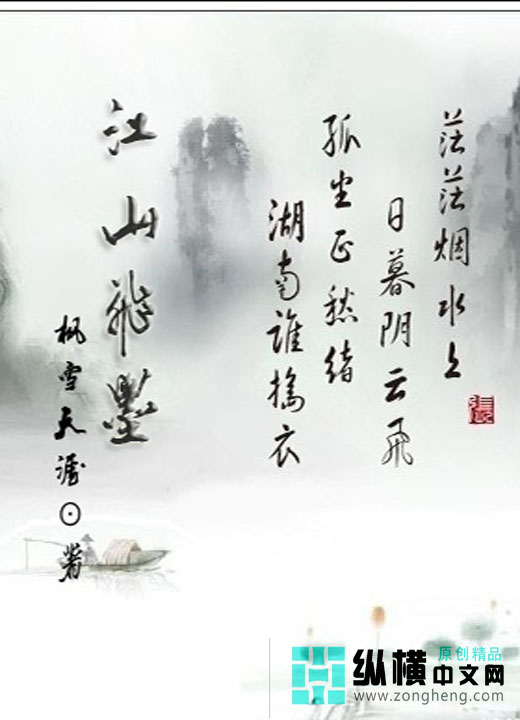 茫茫烟水上
日暮阴云飞
孤坐正愁绪
湖南谁捣衣
江山飛墨
枫雪天涯⊙著
纵横
原创精品
中文网
www.zongheng.com